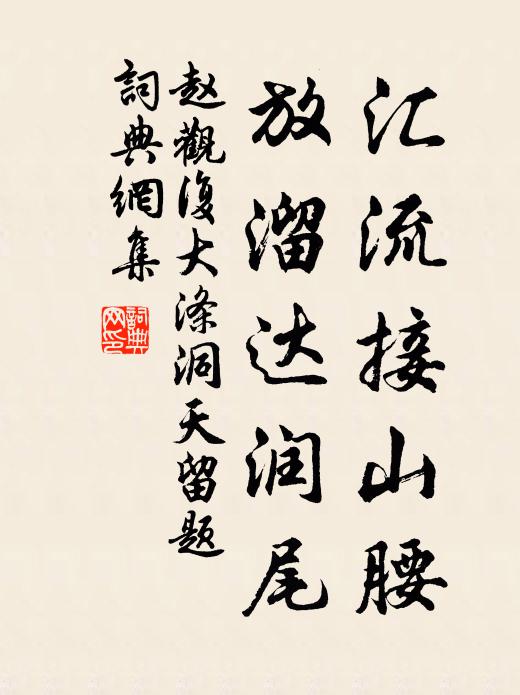 汇流接山腰
放溜达润尾
赵觀復大涤洞天留题
詞典網集
詞典网印